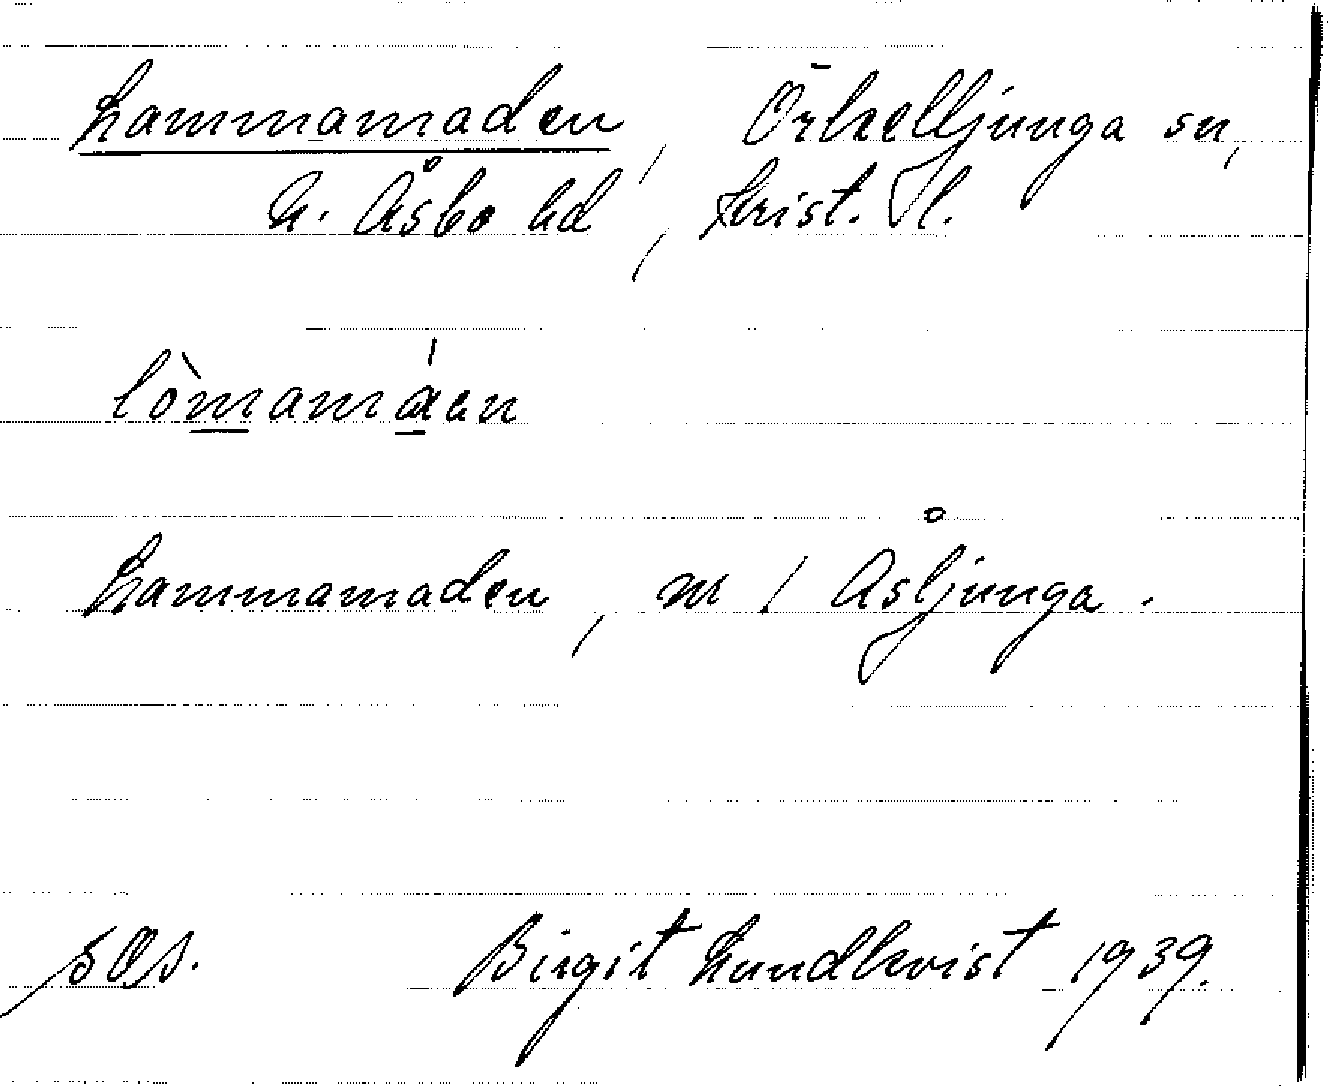 Lammamaden, Örkelljunga sn,
N. Åsbo hd, Krist. l.
lòmamáen
Lammamaden, nr 1 Åsljunga.
SOS. Birgit Lundkvist 1939.